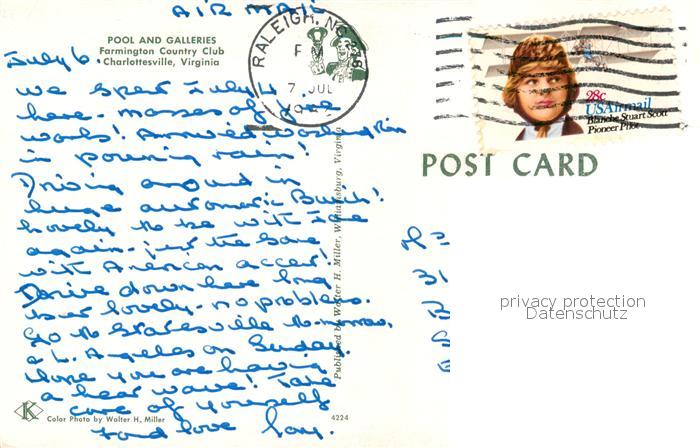 AIR MAIL
POOL AND GALLERIES
Farmington Country Club
Charlottesville, Virginia
July 6.
We spent July 4
here - masses of fire
works! Arrived Washington
in pouring rain!
Driving around in
huge automatic Buick!
Lovely to be with
again - just the same
with American accent!
Drive down here long
but lovely - no problems.
Go to Statesville to-morrow
& L. Angeles on Sunday.
Hope you are having
a heat wave! Take
care of yourself
Fond love
Color Photo by Walter H. Miller
4224
Published by Walter H. Miller, Williamsburg, Virginia
RALEIGH, NC
PM
7 JUL
28c
USAirmail
Blanche Stuart Scott
Pioneer Pilot
POST CARD
31
B
privacy protection
Datenschutz